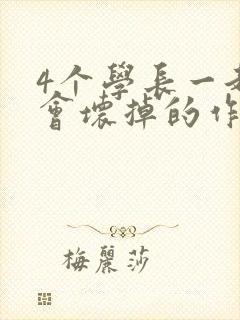 4个學長一
會壞掉的作
梅麗莎